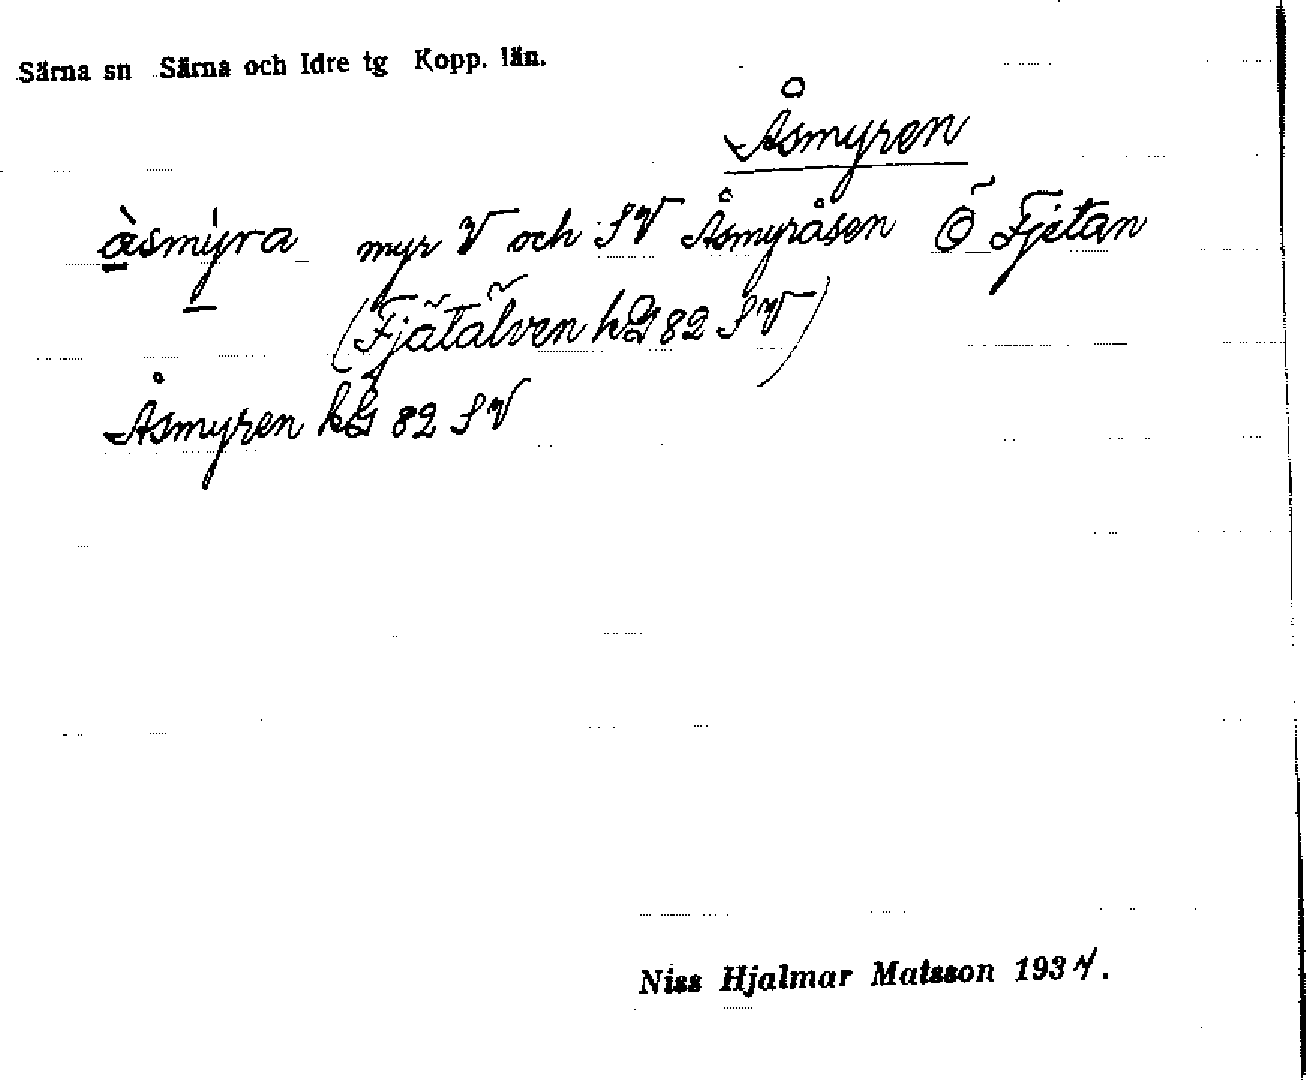 Särna sn Särna och Idre tg Kopp. län.
Åsmyren
àsmýra myr V och SV Åsmyråsen Ö Fjätan
(Fjätälven hg 82 SV)
Åsmyren hg 82 SV
Niss Hjalmar Matsson 1934.